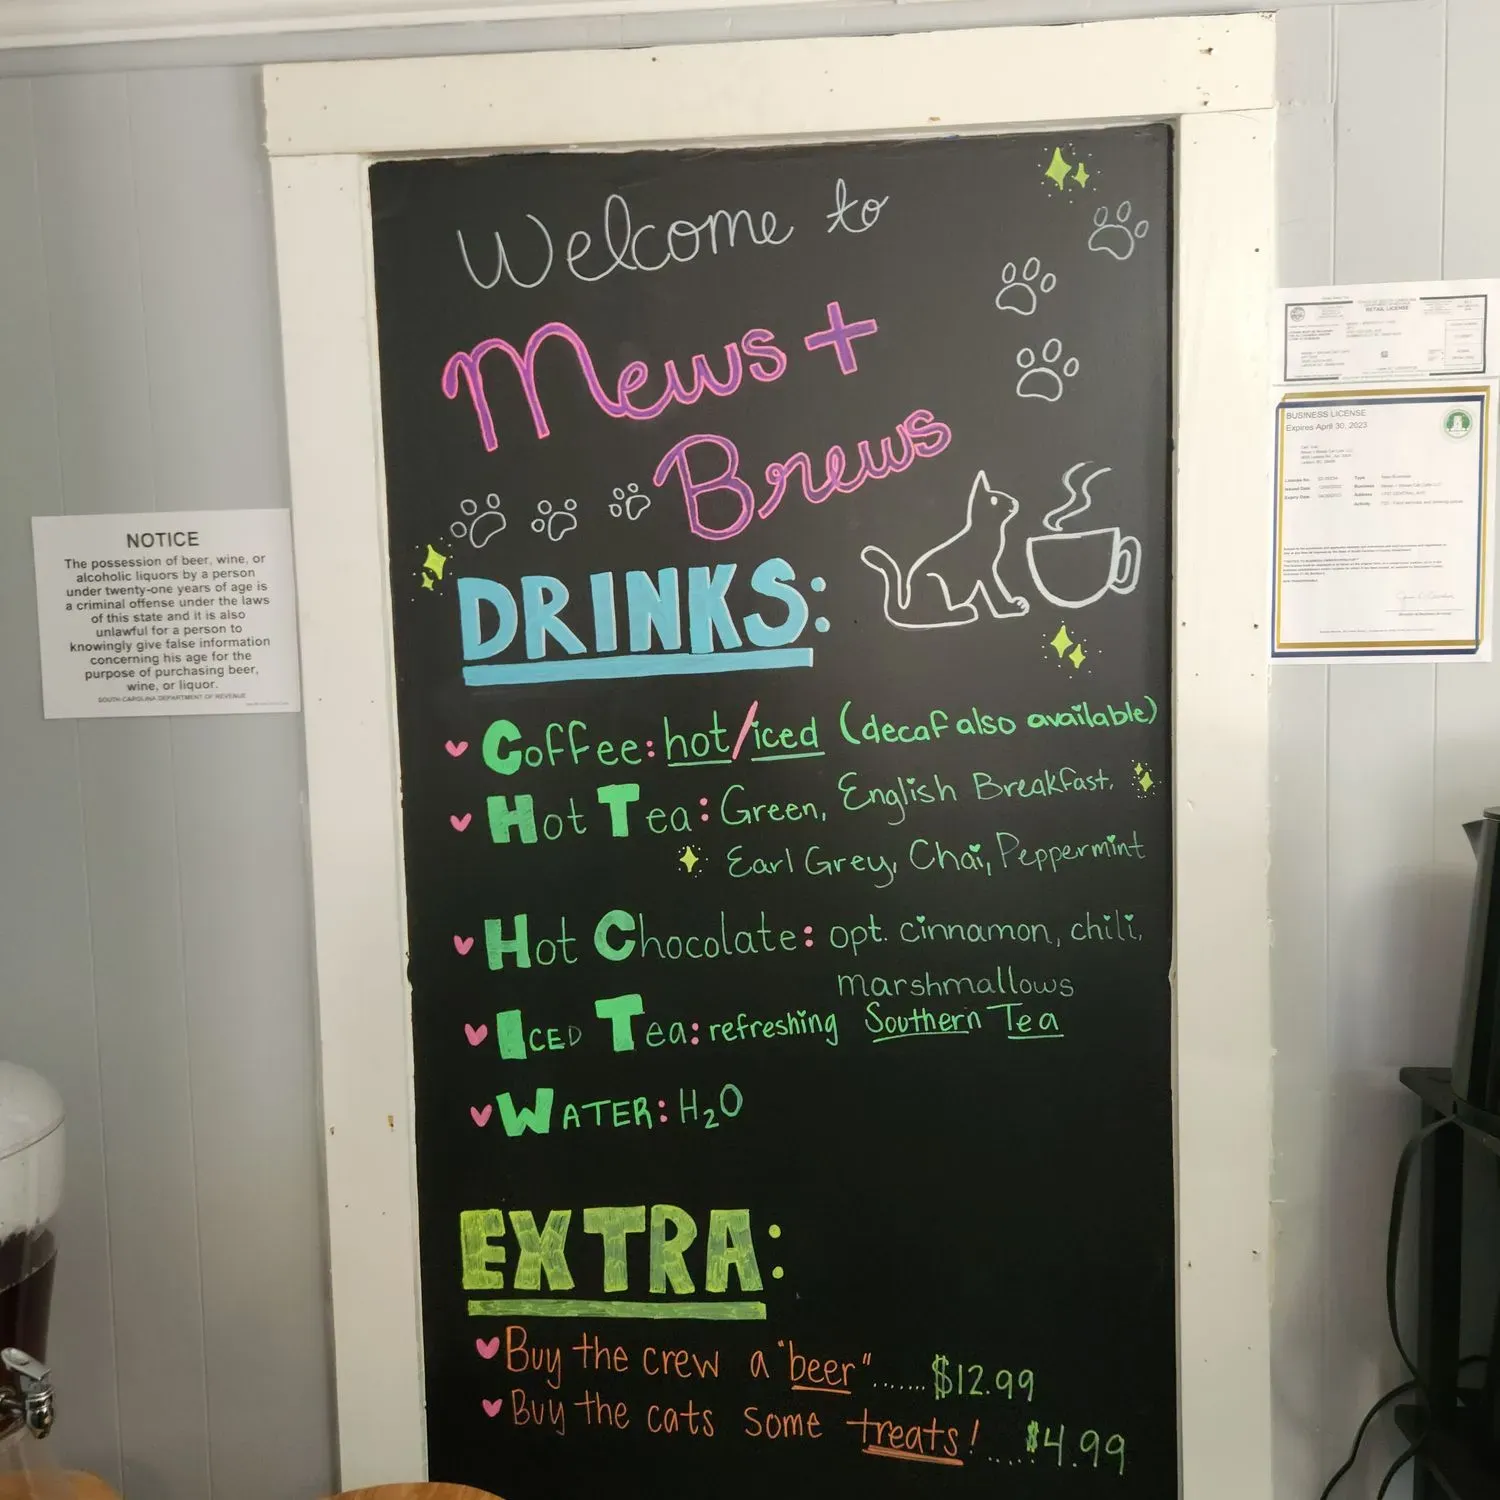 Welcome to
Mews +
Brews
DRINKS:
Coffee: hot/iced (decaf also available)
Hot Tea: Green, English Breakfast,
Earl Grey, Chai, Peppermint
Hot Chocolate: opt. cinnamon, chili,
marshmallows
ICED Tea: refreshing Southern Tea
WATER: H₂O
EXTRA:
Buy the crew a "beer"......$12.99
Buy the cats some treats!.....$4.99
NOTICE
The possession of beer, wine, or
alcoholic liquors by a person
under twenty-one years of age is
a criminal offense under the laws
of this state and it is also
unlawful for a person to
knowingly give false information
concerning his age for the
purpose of purchasing beer,
wine, or liquor.
SOUTH CAROLINA DEPARTMENT OF REVENUE
RETAIL LICENSE
BUSINESS LICENSE
Expires April 30, 2023